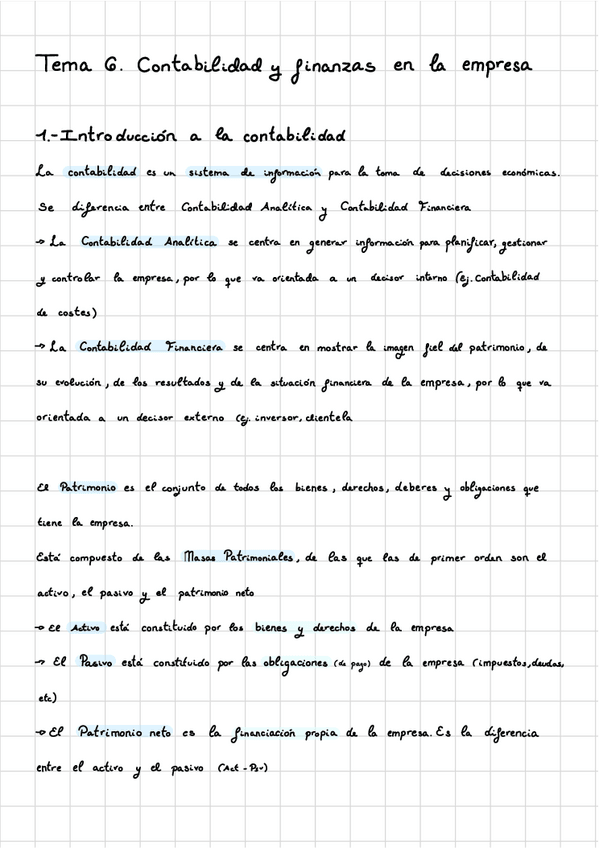 Tema 6. Contabilidad y finanzas en la empresa
1.-Introducción a la contabilidad
La contabilidad es un sistema de información para la toma de decisiones económicas.
Se diferencia entre Contabilidad Analítica y Contabilidad Financiera
→ La Contabilidad Analítica se centra en generar información para planificar, gestionar
y controlar la empresa, por lo que va orientada a un decisor interno (ej. Contabilidad
de costes)
→ La Contabilidad Financiera se centra en mostrar la imagen fiel del patrimonio, de
su evolución, de los resultados y de la situación financiera de la empresa, por lo que va
orientada a un decisor externo (ej. inversor, clientela
El Patrimonio es el conjunto de todos los bienes, derechos, deberes y obligaciones que
tiene la empresa.
Está compuesto de las Masas Patrimoniales, de las que las de primer orden son el
activo, el pasivo y el patrimonio neto
→ El Activo está constituido por los bienes y derechos de la empresa
→ El Pasivo está constituido por las obligaciones (de pago) de la empresa (impuestos, deudas,
etc)
→ El Patrimonio neto es la financiación propia de la empresa. Es la diferencia
entre el activo y el pasivo (Act - Psv)